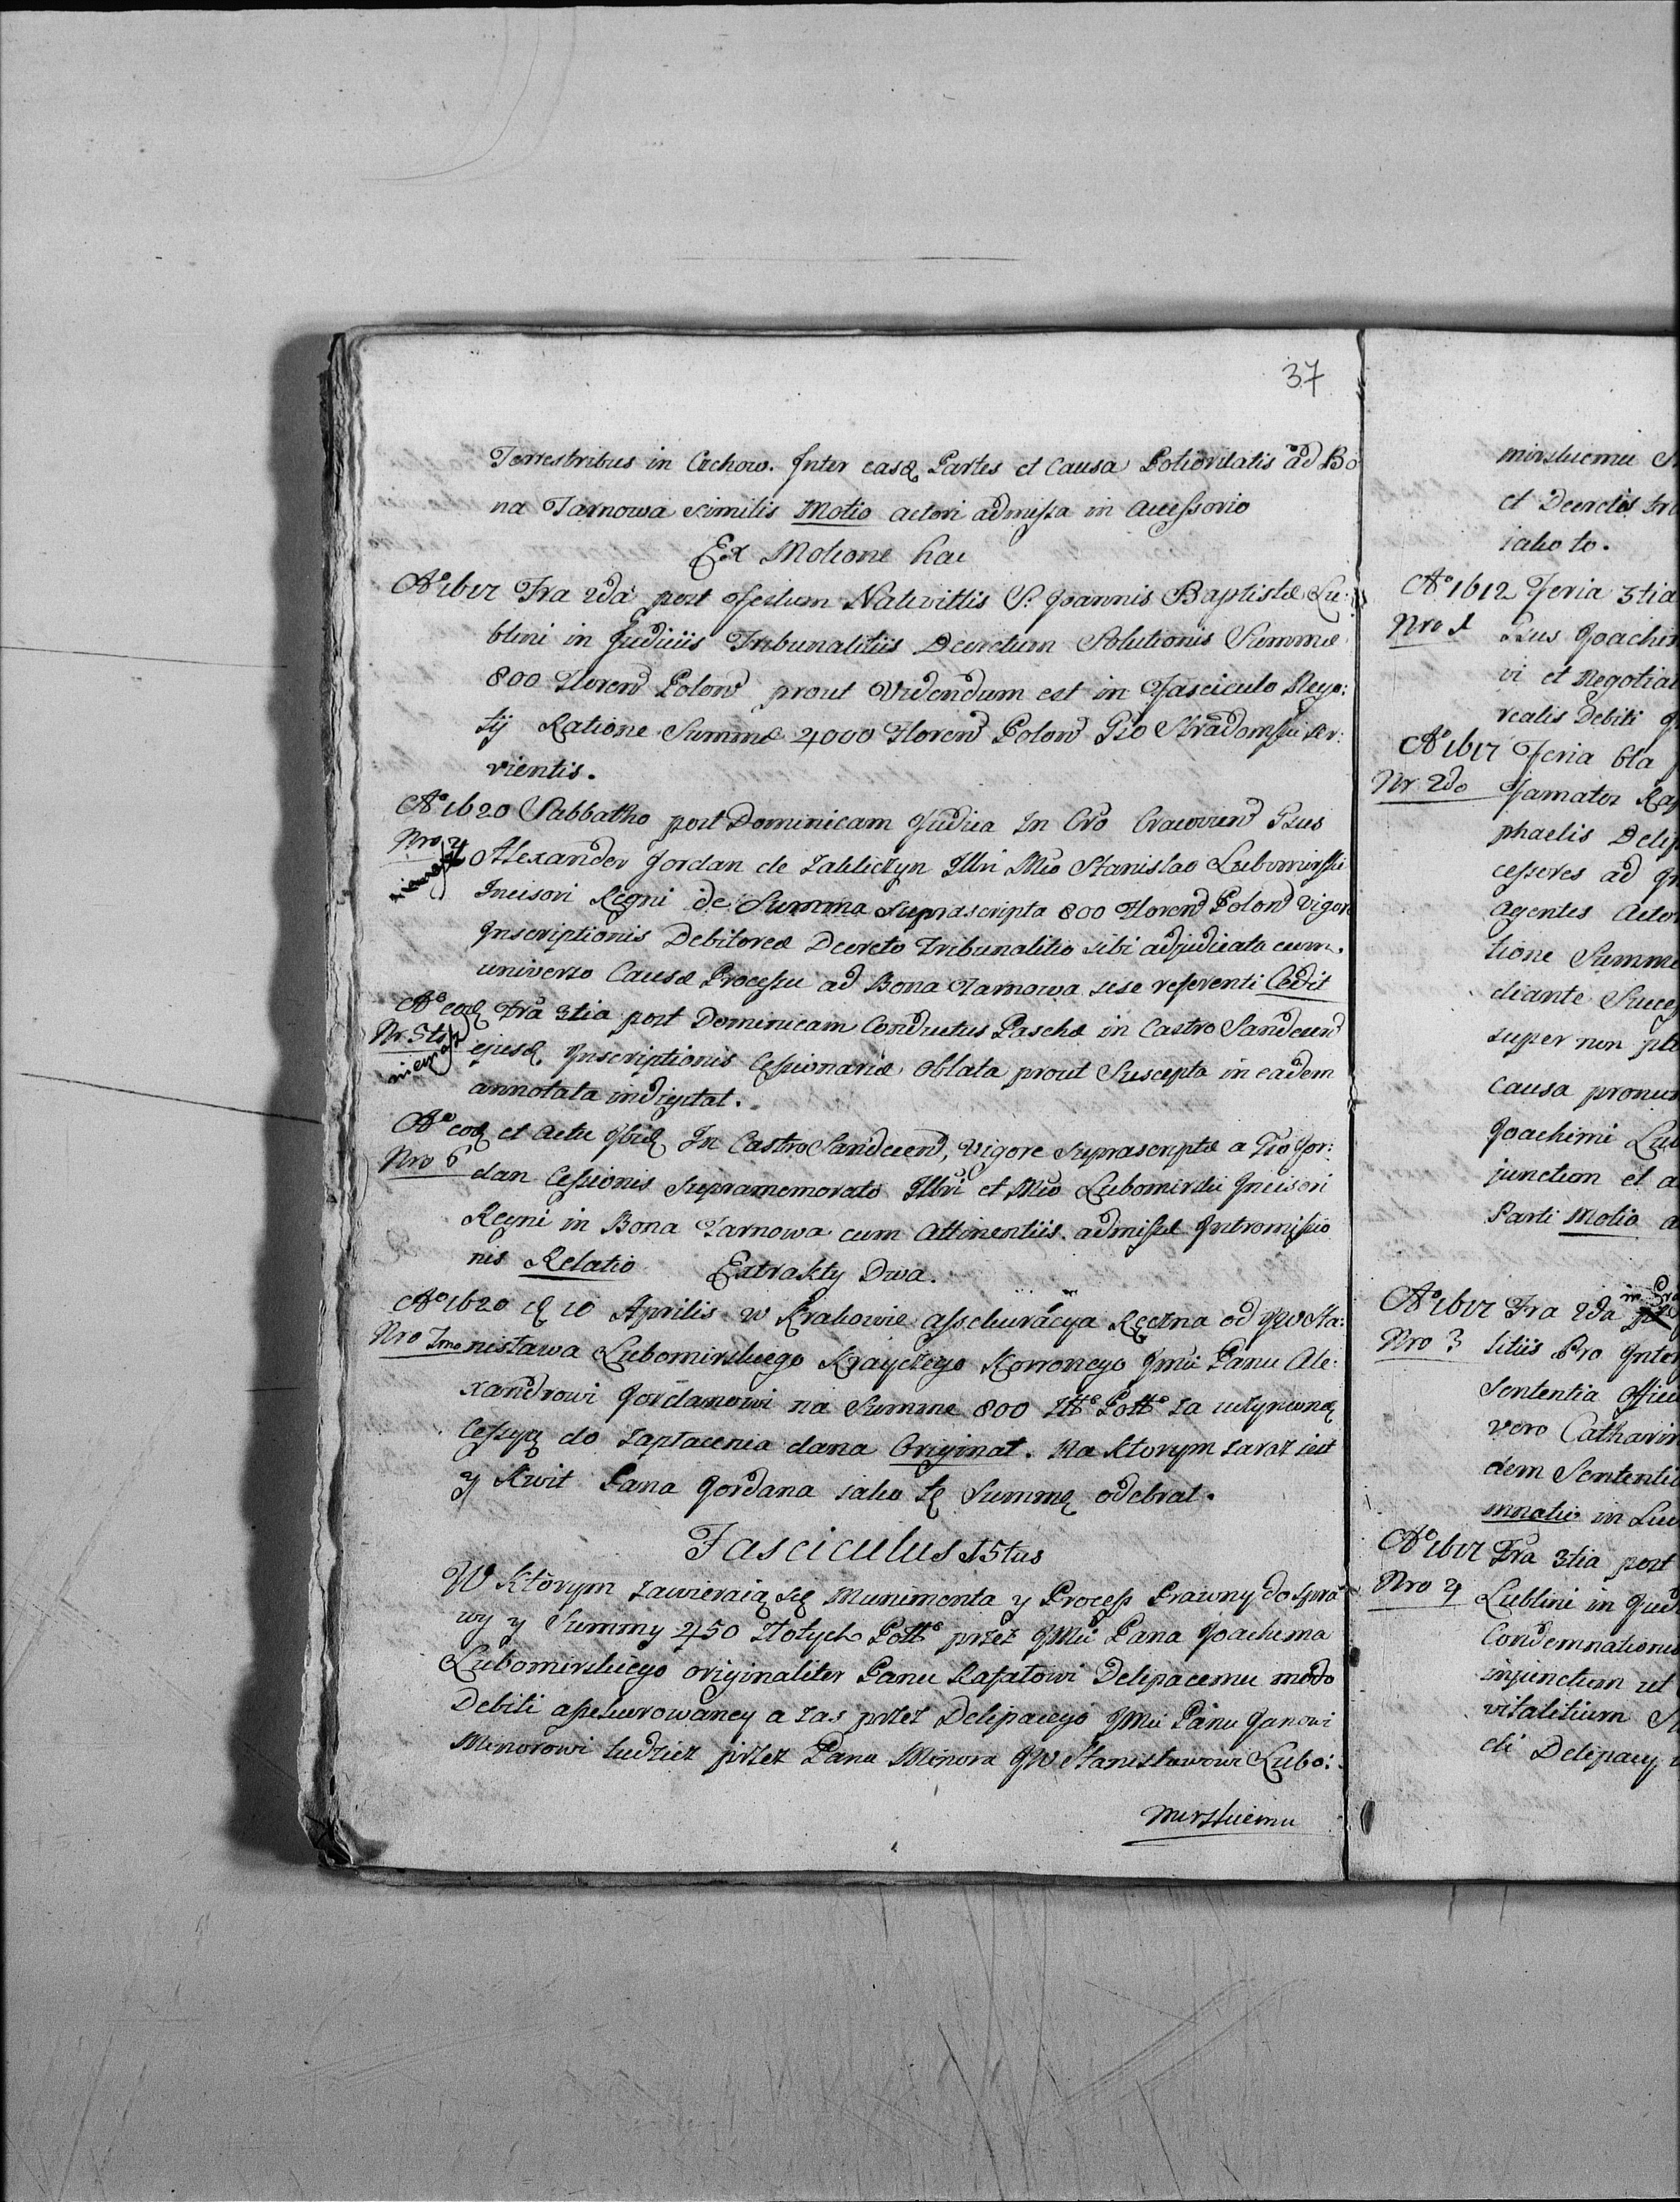 37
Terrestribus in Czchow. Inter easq Partes et Causa Potioritatis ad Bo
na Tarnowa similis Motio actori admissa in accessorio
Ex Motione hac
Aº 1617 Fra 2da post Festum Nativittis S. Joannis Baptistæ Lu:
blini in Judiciis Tribunalitiis Decretum Solutionis Summæ
800 Floren Polon prout Videndum est in Fasciculo Nego:
tij Ratione Summæ 4000 Floren Polon Gso Stradomski ser:
vientis.
Aº 1620 Sabbatho post Dominicam Judica In Cro Cracovien Gsus
Nro 4
Alexander Jordan de Zakliczyn Illri Mco Stanislao Lubomirski
Incisori Regni de Summa suprascripta 800 Floren Polon Vigore
Inscriptionis Debitoreæ Decreto Tribunalitio sibi adjudicata cum
universo Causæ Processu ad Bona Tarnowa sese referenti Cedit
Aº eoq Fra 3tia post Dominicam Conductus Paschæ in Castro Sandecen
Nr 5to ejusq Inscriptionis Cessionariæ Oblata prout Suscepta in eadem
annotata indigitat.
Aº eoq et Actu Ibiq In Castro Sandecen, Vigore Suprascriptæ a Gso Jor:
Nro 6 dan Cessionis supramemorato Illri et Mco Lubomirski Incisori
Regni in Bona Tarnowa cum Attinentiis admissæ Intromissio
nis Relatio Extrakty Dwa.
Aº 1620 10 Aprilis w Krakowie assekuracya Ręczna od JW Sta:
Nro 7mo nisława Lubomirskiego Krayczego Korronego Jmci Panu Ale:
xandrowi Jordanowi na Summe 800 Złł Poll za uczynioną
Cessyą do zapłacenia dana Originał. Na ktorym zaraz iest
y Kwit Pana Jordana iako tę Summę odebrał.
Fasciculus 15tus
W ktorym zawieraią się Munimenta y Process Prawny do spra
wy y Summy 450 złotych Poll przez JMci Pana Joachima
Lubomirskiego originaliter Panu Rafałowi Delipacemu modo
Debiti assekurowaney a zas przez Delipacego JMci Panu Janowi
Minorowi tudziez przez Pana Minora JW Stanisławowi Lubo:
mirskiemu
mirskiemu
et Decretis
iako to.
Aº 1612 Feria 3tia
Nro 1 Gsus Joachim
vi et Negotia
realis Debiti
Aº 1617 Feria 6ta
Nr 2do Famatos
phaelis
cessores ad
Agentes
tione Summæ
diante
super non
causa
Joachimi
junctum et
Parti Motio
Aº 1617 Fra 2da
Nro 3 litiis Pro
Sententia
vero
dem
in
Aº 1617 Fra 3tia post
Nro 4 Lublini in
Condemnationis
injunctum ut
vitalitium
di Delipacy